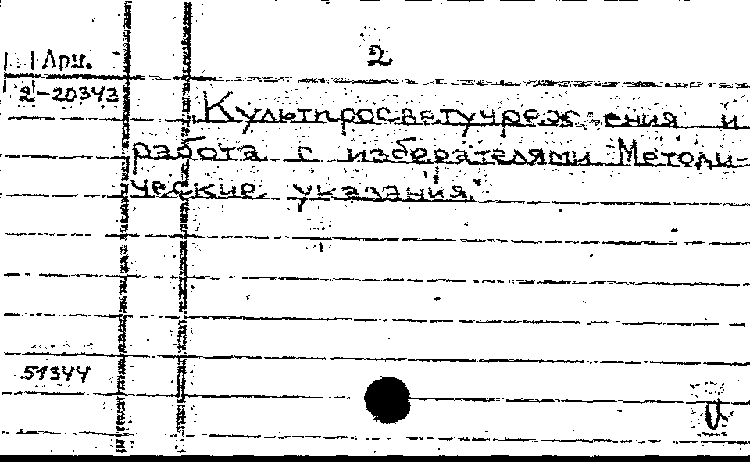 2
Арм.
2-20343
Культпросветучреждения и
работа с избирателями Методи-
ческие указания.
51344